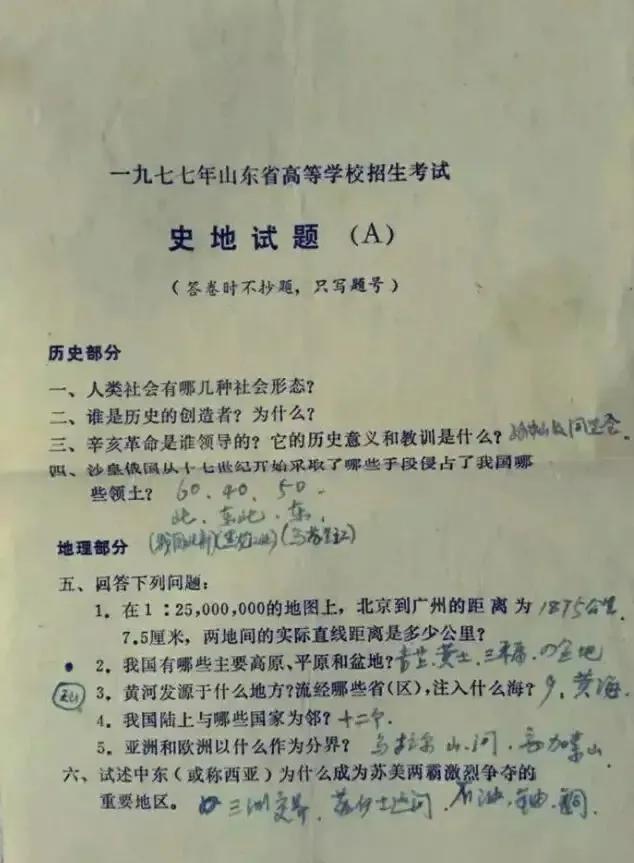 一九七七年山东省高等学校招生考试
史地试题（A）
（答卷时不抄题，只写题号）
历史部分
一、人类社会有哪几种社会形态？
二、谁是历史的创造者？为什么？
三、辛亥革命是谁领导的？它的历史意义和教训是什么？
四、沙皇俄国从十七世纪开始采取了哪些手段侵占了我国哪
些领土？ 60、40、50
北、东北、东
地理部分
五、回答下列问题：
1．在1：25,000,000的地图上，北京到广州的距离为 1875公里
7.5厘米，两地间的实际直线距离是多少公里？
2．我国有哪些主要高原、平原和盆地？
3．黄河发源于什么地方？流经哪些省(区)，注入什么海？ 9、黄海
4．我国陆上与哪些国家为邻？ 十二个.
5．亚洲和欧洲以什么作为分界？ 乌拉尔山、河、高加索山
六、试述中东（或称西亚）为什么成为苏美两霸激烈争夺的
重要地区。 三洲交界、苏伊士运河、石油